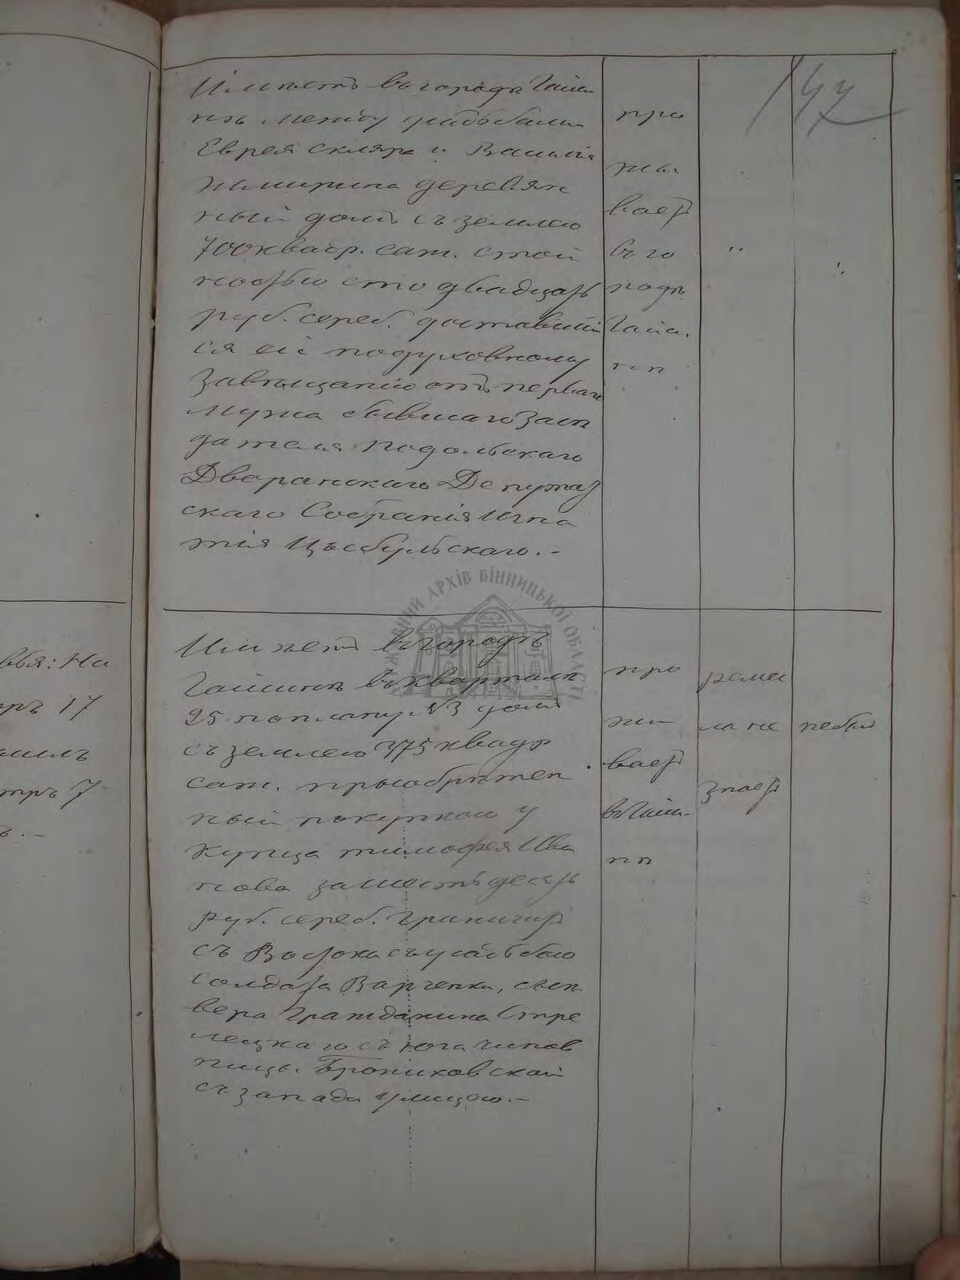 147
Имѣетъ въ городѣ Гайси
нѣ между усадьбами
Еврея скляра и Василія
деревян
ный домъ съ землею
700 квадр. саж. стои
мостью сто двадцать
руб. сереб. доставшій
ся ей по духовному
завѣщанію отъ перваго
мужа бывшаго Засѣ
дателя Подольскаго
Дворянскаго Депутат
скаго Собранія Игна
тія Цыбульскаго. –
про
жи
ваетъ
въ го
родѣ
Гайси
нѣ
"
"
Имѣетъ въ городѣ
Гайсинѣ въ кварталѣ
25 по плану №3 домъ
съ землею 375 квадр
саж. приобрѣтен
ный покупкою у
купца тимофея Ива
нова за шестьдесятъ
руб. сереб. Граничитъ
съ Востока съ усадьбою
солдата Варченка, сѣ
вера Гражданина Стре
лецкаго съ юга чинов
ницы Брониковской
съ запада улицею. –
про
жи
ваетъ
въ Гайси
нѣ
ремес
ла не
знаетъ
небылъ
ДЕРЖАВНИЙ АРХІВ ВІННИЦЬКОЇ ОБЛАСТІ
вья: На
тръ 17
аилъ
тръ 7
ъ. –